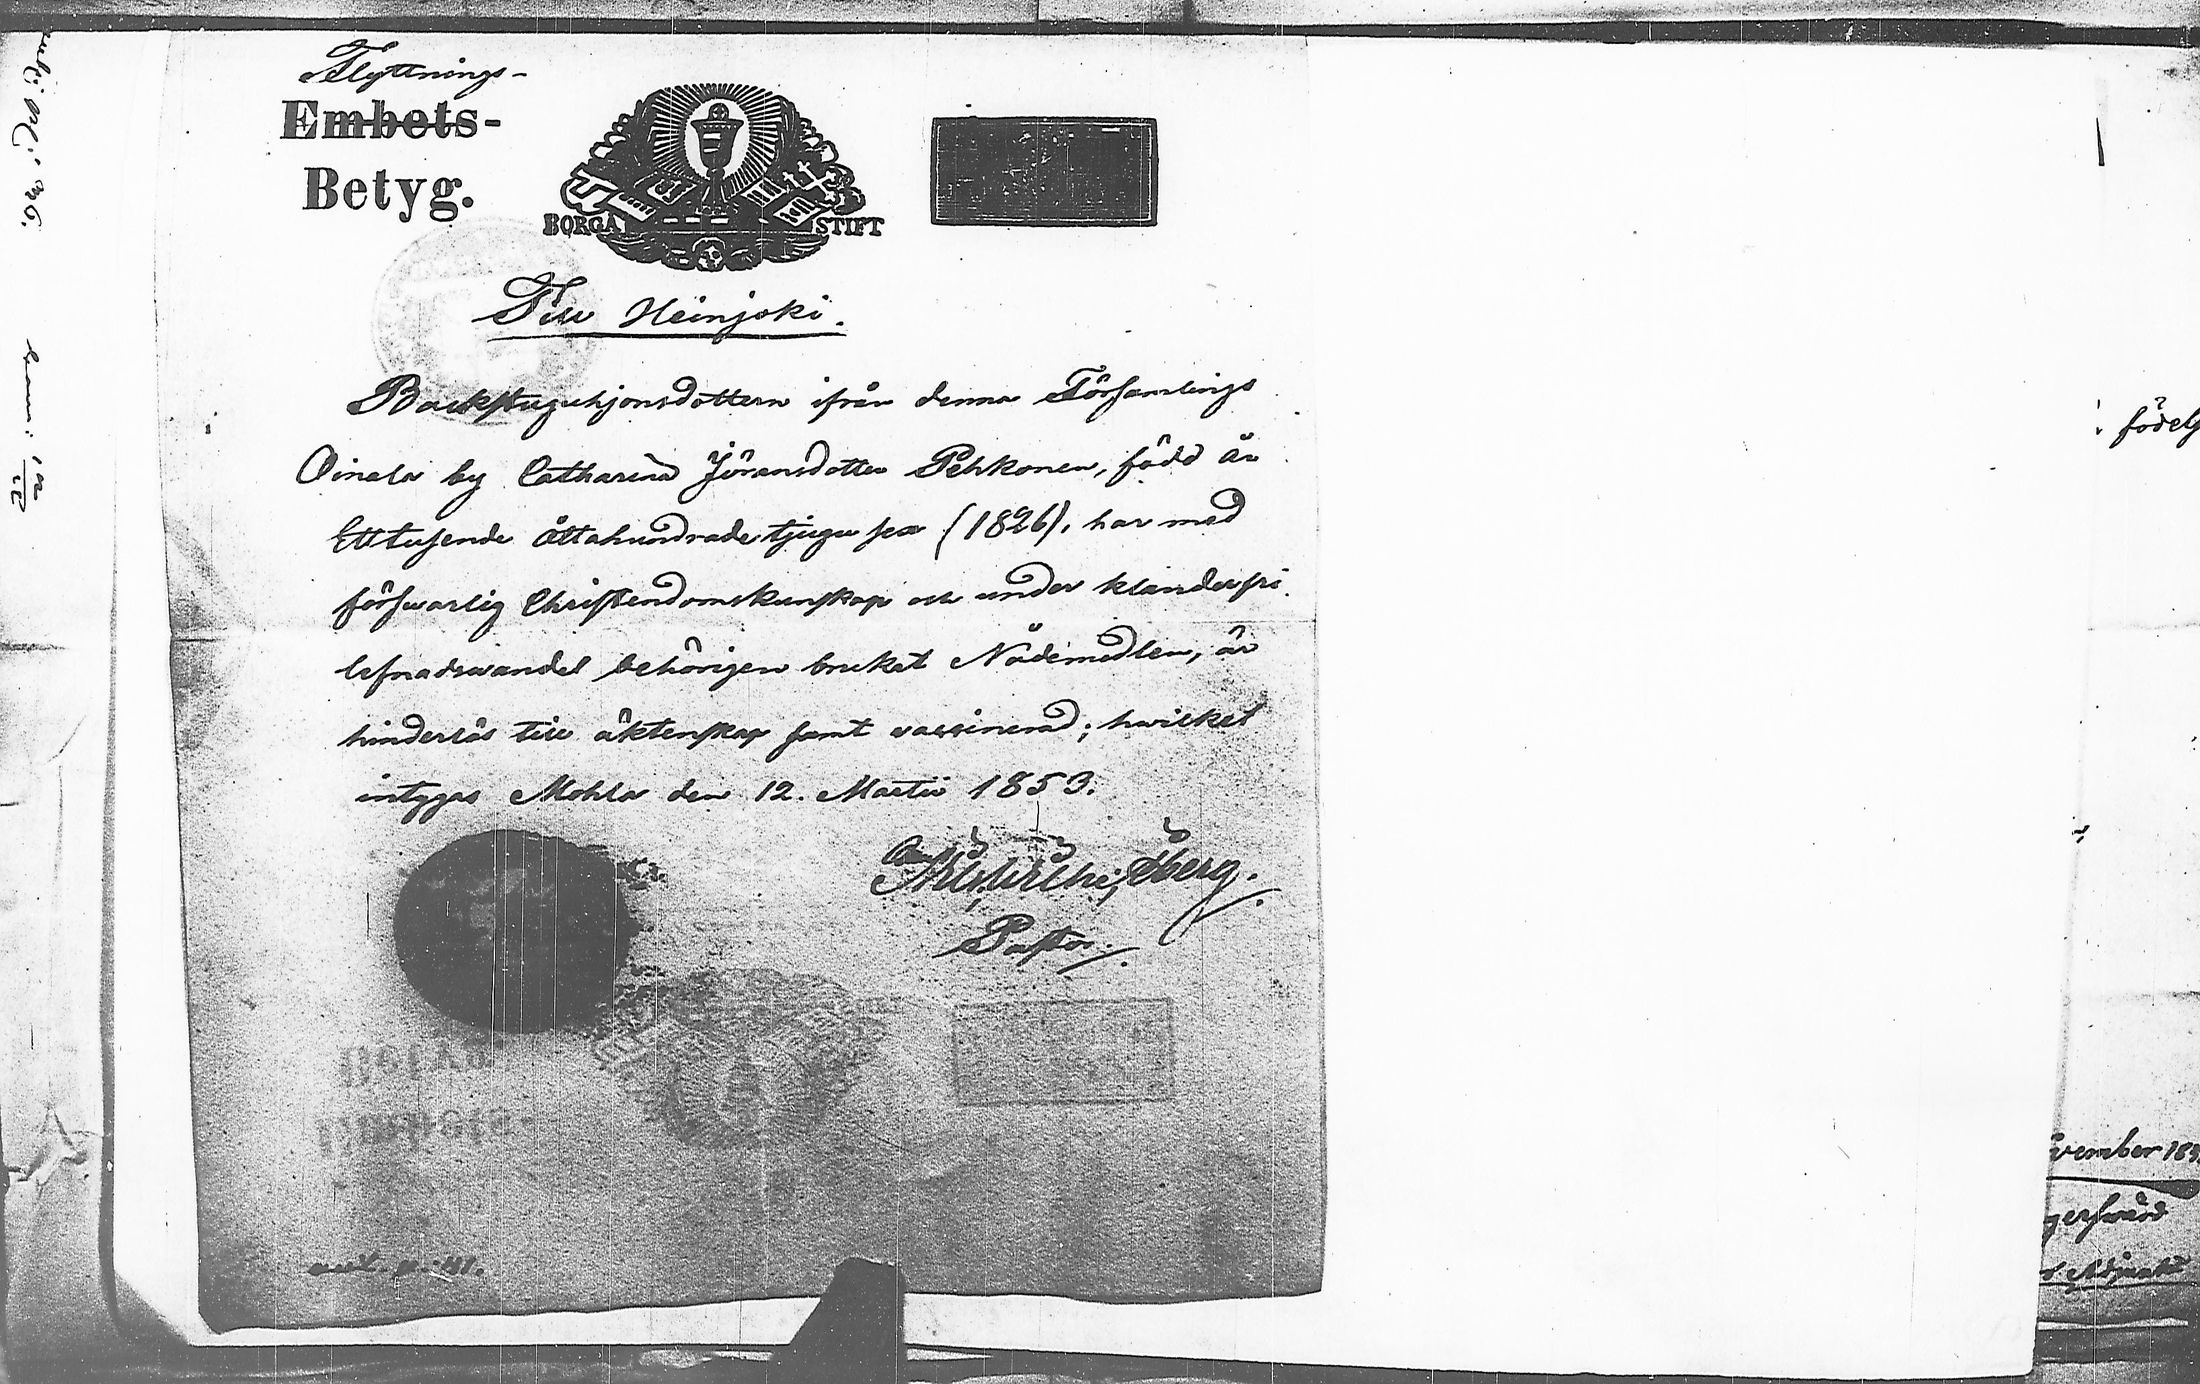 Flyttnings-
Embets-
Betyg.
BORGÅ STIFT
Till Heinjoki.
Backstuguhjonsdottern ifrån denna Församlings
Oinala by Catharina Jöransdotter Pehkonen, född år
Ettusende åttahundrade tjugu sex (1826), har med
försvarlig Christendomskunskap och under klanderfri
lefnadsvandel behörigen brukat Nådemedlen, är
hinderlös till äktenskap samt vaccinerad; hwilket
intygas Mohla den 12. Martii 1853.
Öberg.
Pastor.
födels
vember 185
Adjunkt